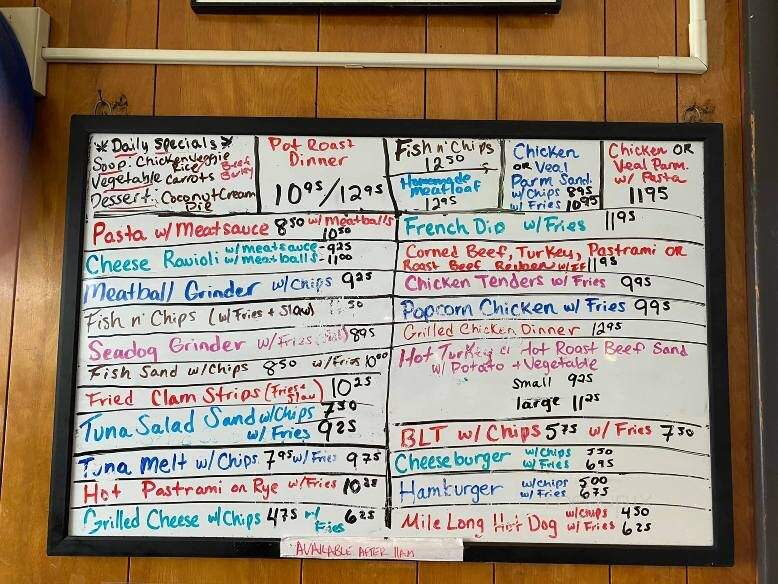 * Daily Specials *
Soup: Chicken Veggie
Rice Beef
Barley
Vegetable Carrots
Dessert: Coconut Cream
Pie
Pot Roast
Dinner
10 95 / 12 95
Fish n' Chips
12 50
Homemade
meatloaf
12 95
Chicken
OR Veal
Parm Sand.
w/ Chips 8 95
w/ Fries 10 95
Chicken OR
Veal Parm.
w/ Pasta
11 95
Pasta w/ Meatsauce 8 50 w/ Meatballs
10 50
Cheese Ravioli w/ meatsauce - 9 25
w/ meatballs - 11 00
Meatball Grinder w/ Chips 9 25
Fish n' Chips (w/ Fries + Slaw) 50
Seadog Grinder w/ Fries 8 95
Fish Sand w/ Chips 8 50 w/ Fries 10 00
Fried Clam Strips (Fries + Slaw) 10 25
Tuna Salad Sand w/ Chips 7 50
w/ Fries 9 25
Tuna Melt w/ Chips 7 95 w/ Fries 9 75
Hot Pastrami on Rye w/ Fries 10 25
Grilled Cheese w/ Chips 4 75 w/ Fries 6 25
French Dip w/ Fries 11 95
Corned Beef, Turkey, Pastrami OR
Roast Beef Reuben w/ FF 11 95
Chicken Tenders w/ Fries 9 95
Popcorn Chicken w/ Fries 9 95
Grilled Chicken Dinner 12 95
Hot Turkey or Hot Roast Beef Sand
w/ Potato + Vegetable
small 9 25
large 11 25
BLT w/ Chips 5 75 w/ Fries 7 50
Cheeseburger w/ Chips 5 50
w/ Fries 6 95
Hamburger w/ chips 5 00
w/ Fries 6 75
Mile Long Hot Dog w/ Chips 4 50
w/ Fries 6 25
AVAILABLE AFTER 11AM